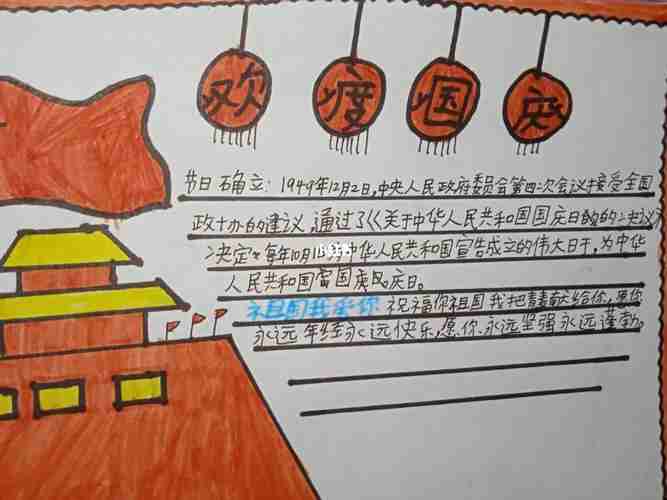 欢度国庆
节日确立：1949年12月2日,中央人民政府委员会第四次会议接受全国
政协的建议，通过了《关于中华人民共和国国庆日的决议》
决定每年10月1日为中华人民共和国宣告成立的伟大日子，为中华
人民共和国国庆日。
祖国我爱你 祝福你祖国 我把青春献给你，愿你
永远年轻永远快乐愿你永远坚强永远谨勒。